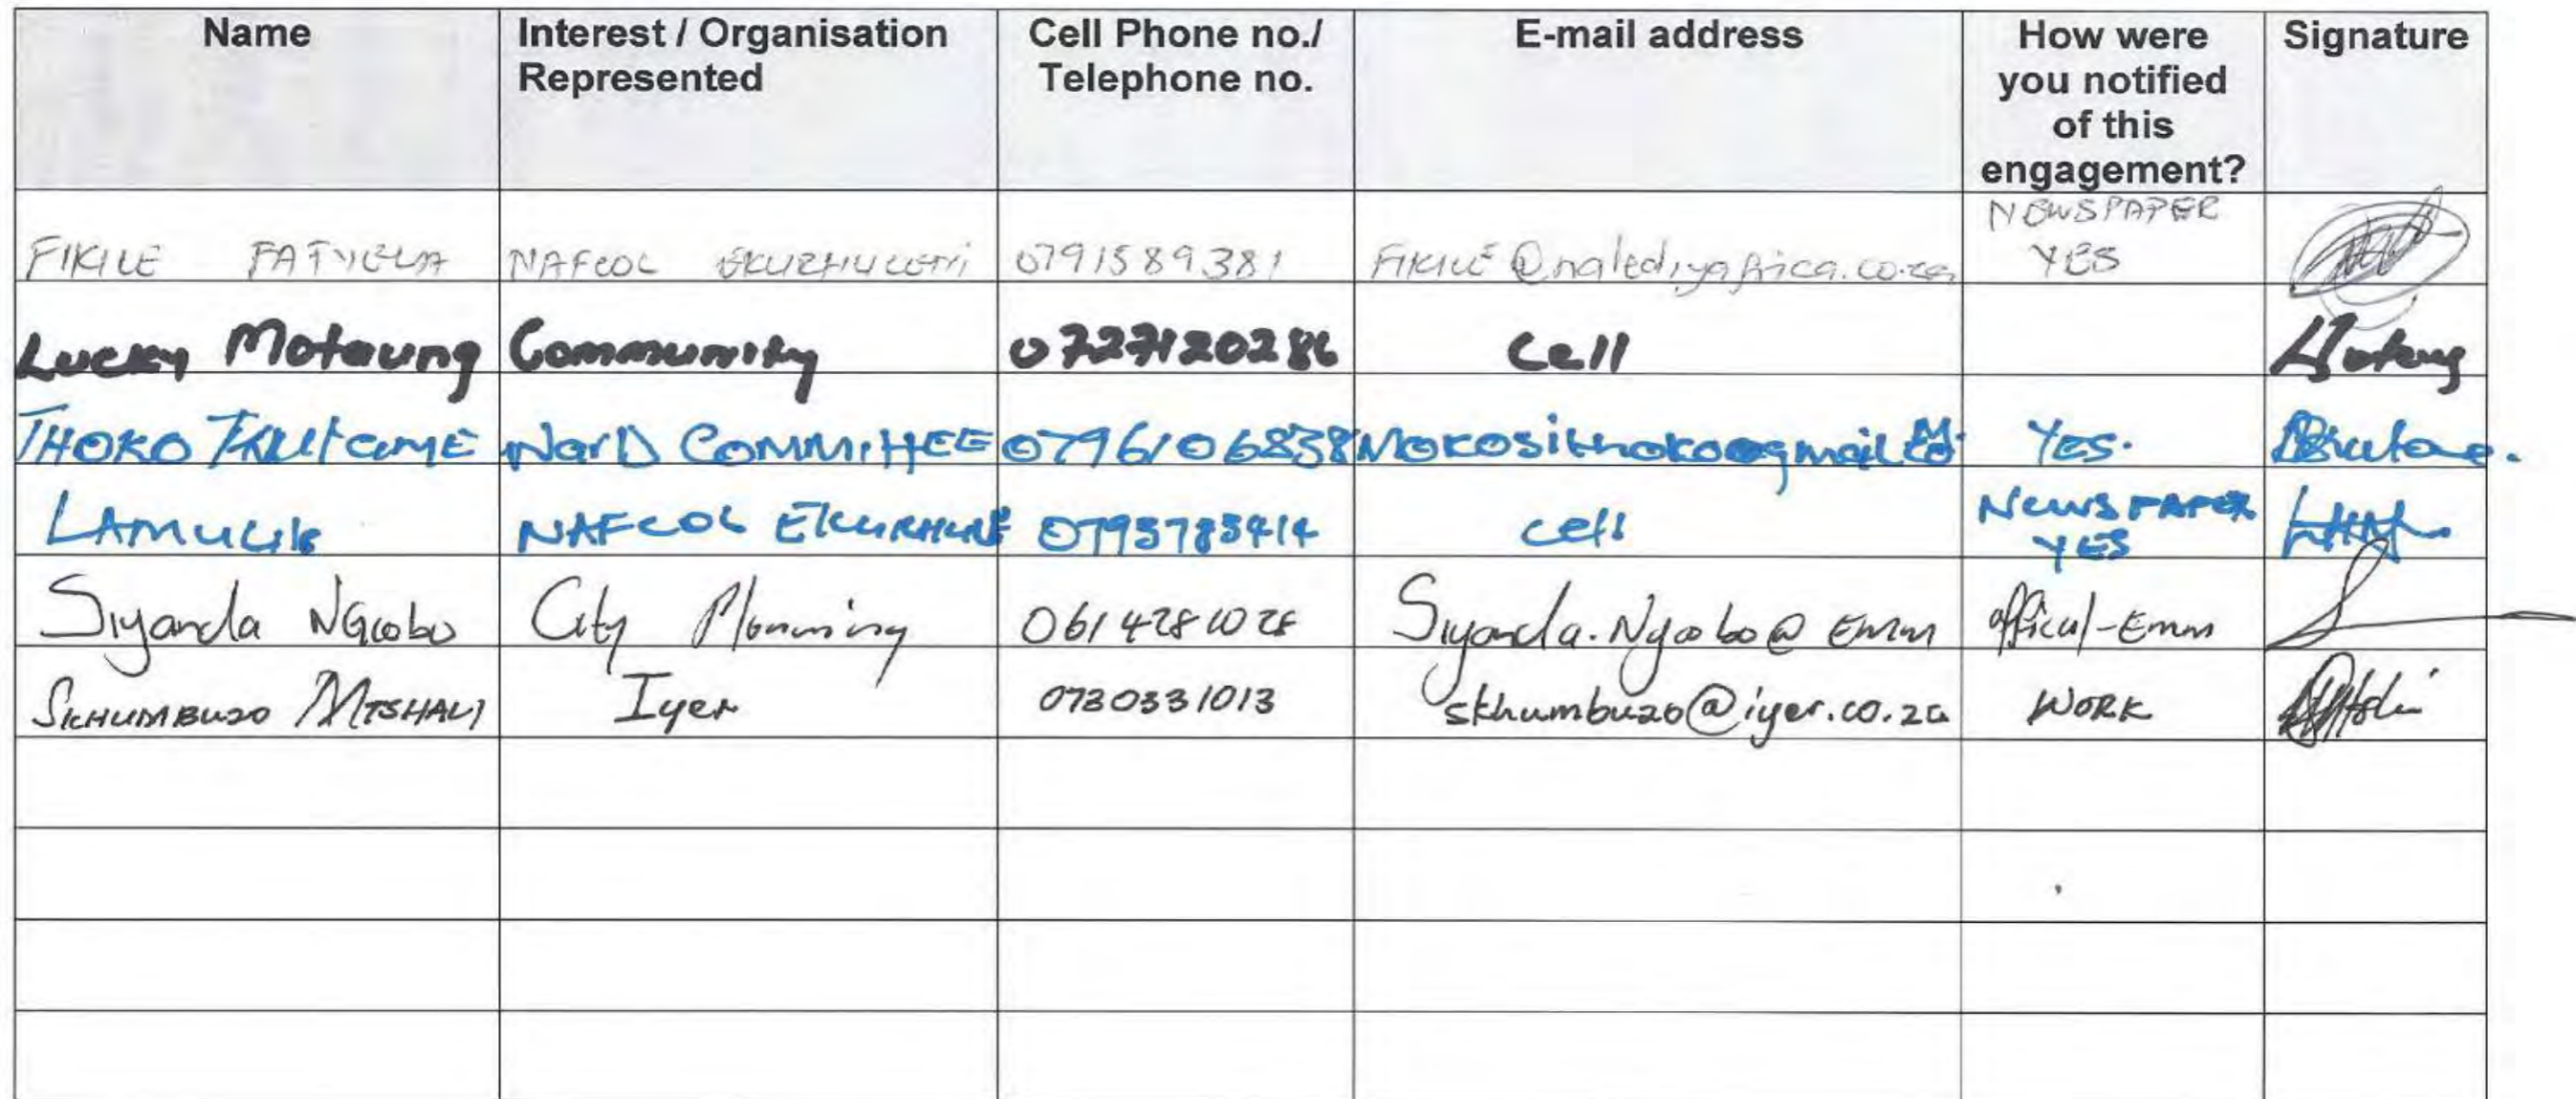 Name Interest / Organisation Represented Cell Phone no./ Telephone no. E-mail address How were you notified of this engagement? Signature
FIKILE FATYELA NAFCOC EKURHULENI 0791589381 FIKILE@nalediyafrica.co.za NEWSPAPER YES
Lucky Motaung Community 0727120286 Cell
THOKO WARD COMMITTEE 0796106838 Mokosithoko@gmail.com YES.
NAFCOC 0793783414 cell NEWSPAPER YES
Siyanda NGcobo City Planning 0614281028 Siyanda.Ngcobo@Emm offical-Emm
SKHUMBUZO MTSHALI Iyer 0730331013 skhumbuzo@iyer.co.za WORK